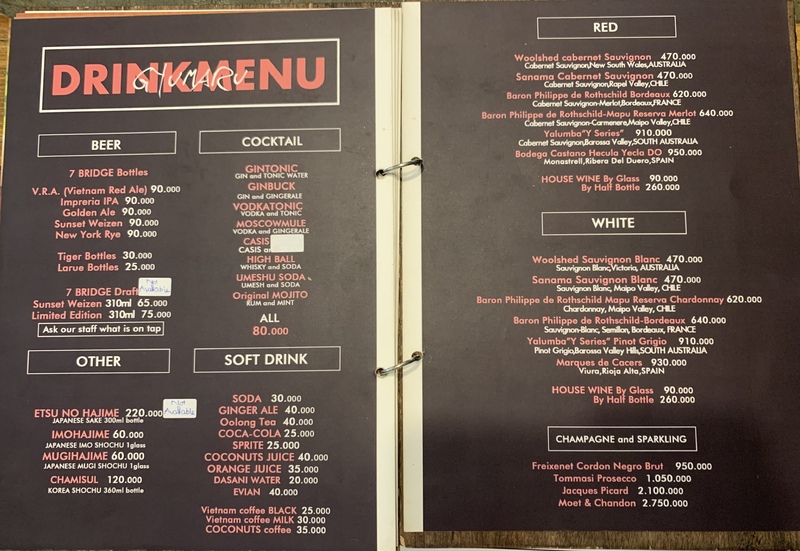 DRINKMENU
GYUMARU
BEER
7 BRIDGE Bottles
V.R.A. (Vietnam Red Ale) 90.000
Impreria IPA 90.000
Golden Ale 90.000
Sunset Weizen 90.000
New York Rye 90.000
Tiger Bottles 30.000
Larue Bottles 25.000
7 BRIDGE Draft
Not Available
Sunset Weizen 310ml 65.000
Limited Edition 310ml 75.000
Ask our staff what is on tap
OTHER
ETSU NO HAJIME 220.000
Not Available
JAPANESE SAKE 300ml bottle
IMOHAJIME 60.000
JAPANESE IMO SHOCHU 1glass
MUGIHAJIME 60.000
JAPANESE MUGI SHOCHU 1glass
CHAMISUL 120.000
KOREA SHOCHU 360ml bottle
COCKTAIL
GINTONIC
GIN and TONIC WATER
GINBUCK
GIN and GINGERALE
VODKATONIC
VODKA and TONIC
MOSCOWMULE
VODKA and GINGERALE
CASIS
CASIS an
HIGH BALL
WHISKY and SODA
UMESHU SODA
UMESH and SODA
Original MOJITO
RUM and MINT
ALL
80.000
SOFT DRINK
SODA 30.000
GINGER ALE 40.000
Oolong Tea 40.000
COCA-COLA 25.000
SPRITE 25.000
COCONUTS JUICE 40.000
ORANGE JUICE 35.000
DASANI WATER 20.000
EVIAN 40.000
Vietnam coffee BLACK 25.000
Vietnam coffee MILK 30.000
COCONUTS coffee 35.000
RED
Woolshed cabernet Sauvignon 470.000
Cabernet Sauvignon,New South Wales,AUSTRALIA
Sanama Cabernet Sauvignon 470.000
Cabernet Sauvignon,Rapel Valley,CHILE
Baron Philippe de Rothschild Bordeaux 620.000
Cabernet Sauvignon-Merlot,Bordeaux,FRANCE
Baron Philippe de Rothschild-Mapu Reserva Merlot 640.000
Cabernet Sauvignon-Carmenera,Maipo Valley,CHILE
Yalumba"Y Series" 910.000
Cabernet Sauvignon,Barossa Valley,SOUTH AUSTRALIA
Bodega Castano Hecula Yecla DO 950.000
Monastrell,Ribera Del Duero,SPAIN
HOUSE WINE By Glass 90.000
By Half Bottle 260.000
WHITE
Woolshed Sauvignon Blanc 470.000
Sauvignon Blanc,Victoria, AUSTRALIA
Sanama Sauvignon Blanc 470.000
Sauvignon Blanc, Maipo Valley, CHILE
Baron Philippe de Rothschild Mapu Reserva Chardonnay 620.000
Chardonnay, Maipo Valley, CHILE
Baron Philippe de Rothschild-Bordeaux 640.000
Sauvignon-Blanc, Semillan, Bordeaux, FRANCE
Yalumba"Y Series" Pinot Grigio 910.000
Pinot Grigio,Barossa Valley Hills,SOUTH AUSTRALIA
Marques de Cacers 930.000
Viura,Rioja Alta,SPAIN
HOUSE WINE By Glass 90.000
By Half Bottle 260.000
CHAMPAGNE and SPARKLING
Freixenet Cordon Negro Brut 950.000
Tommasi Prosecco 1.050.000
Jacques Picard 2.100.000
Moet & Chandon 2.750.000